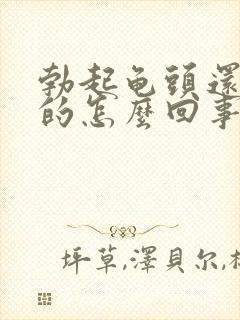 勃起龟頭還
的怎麼回事
坪草,澤貝尔,杉